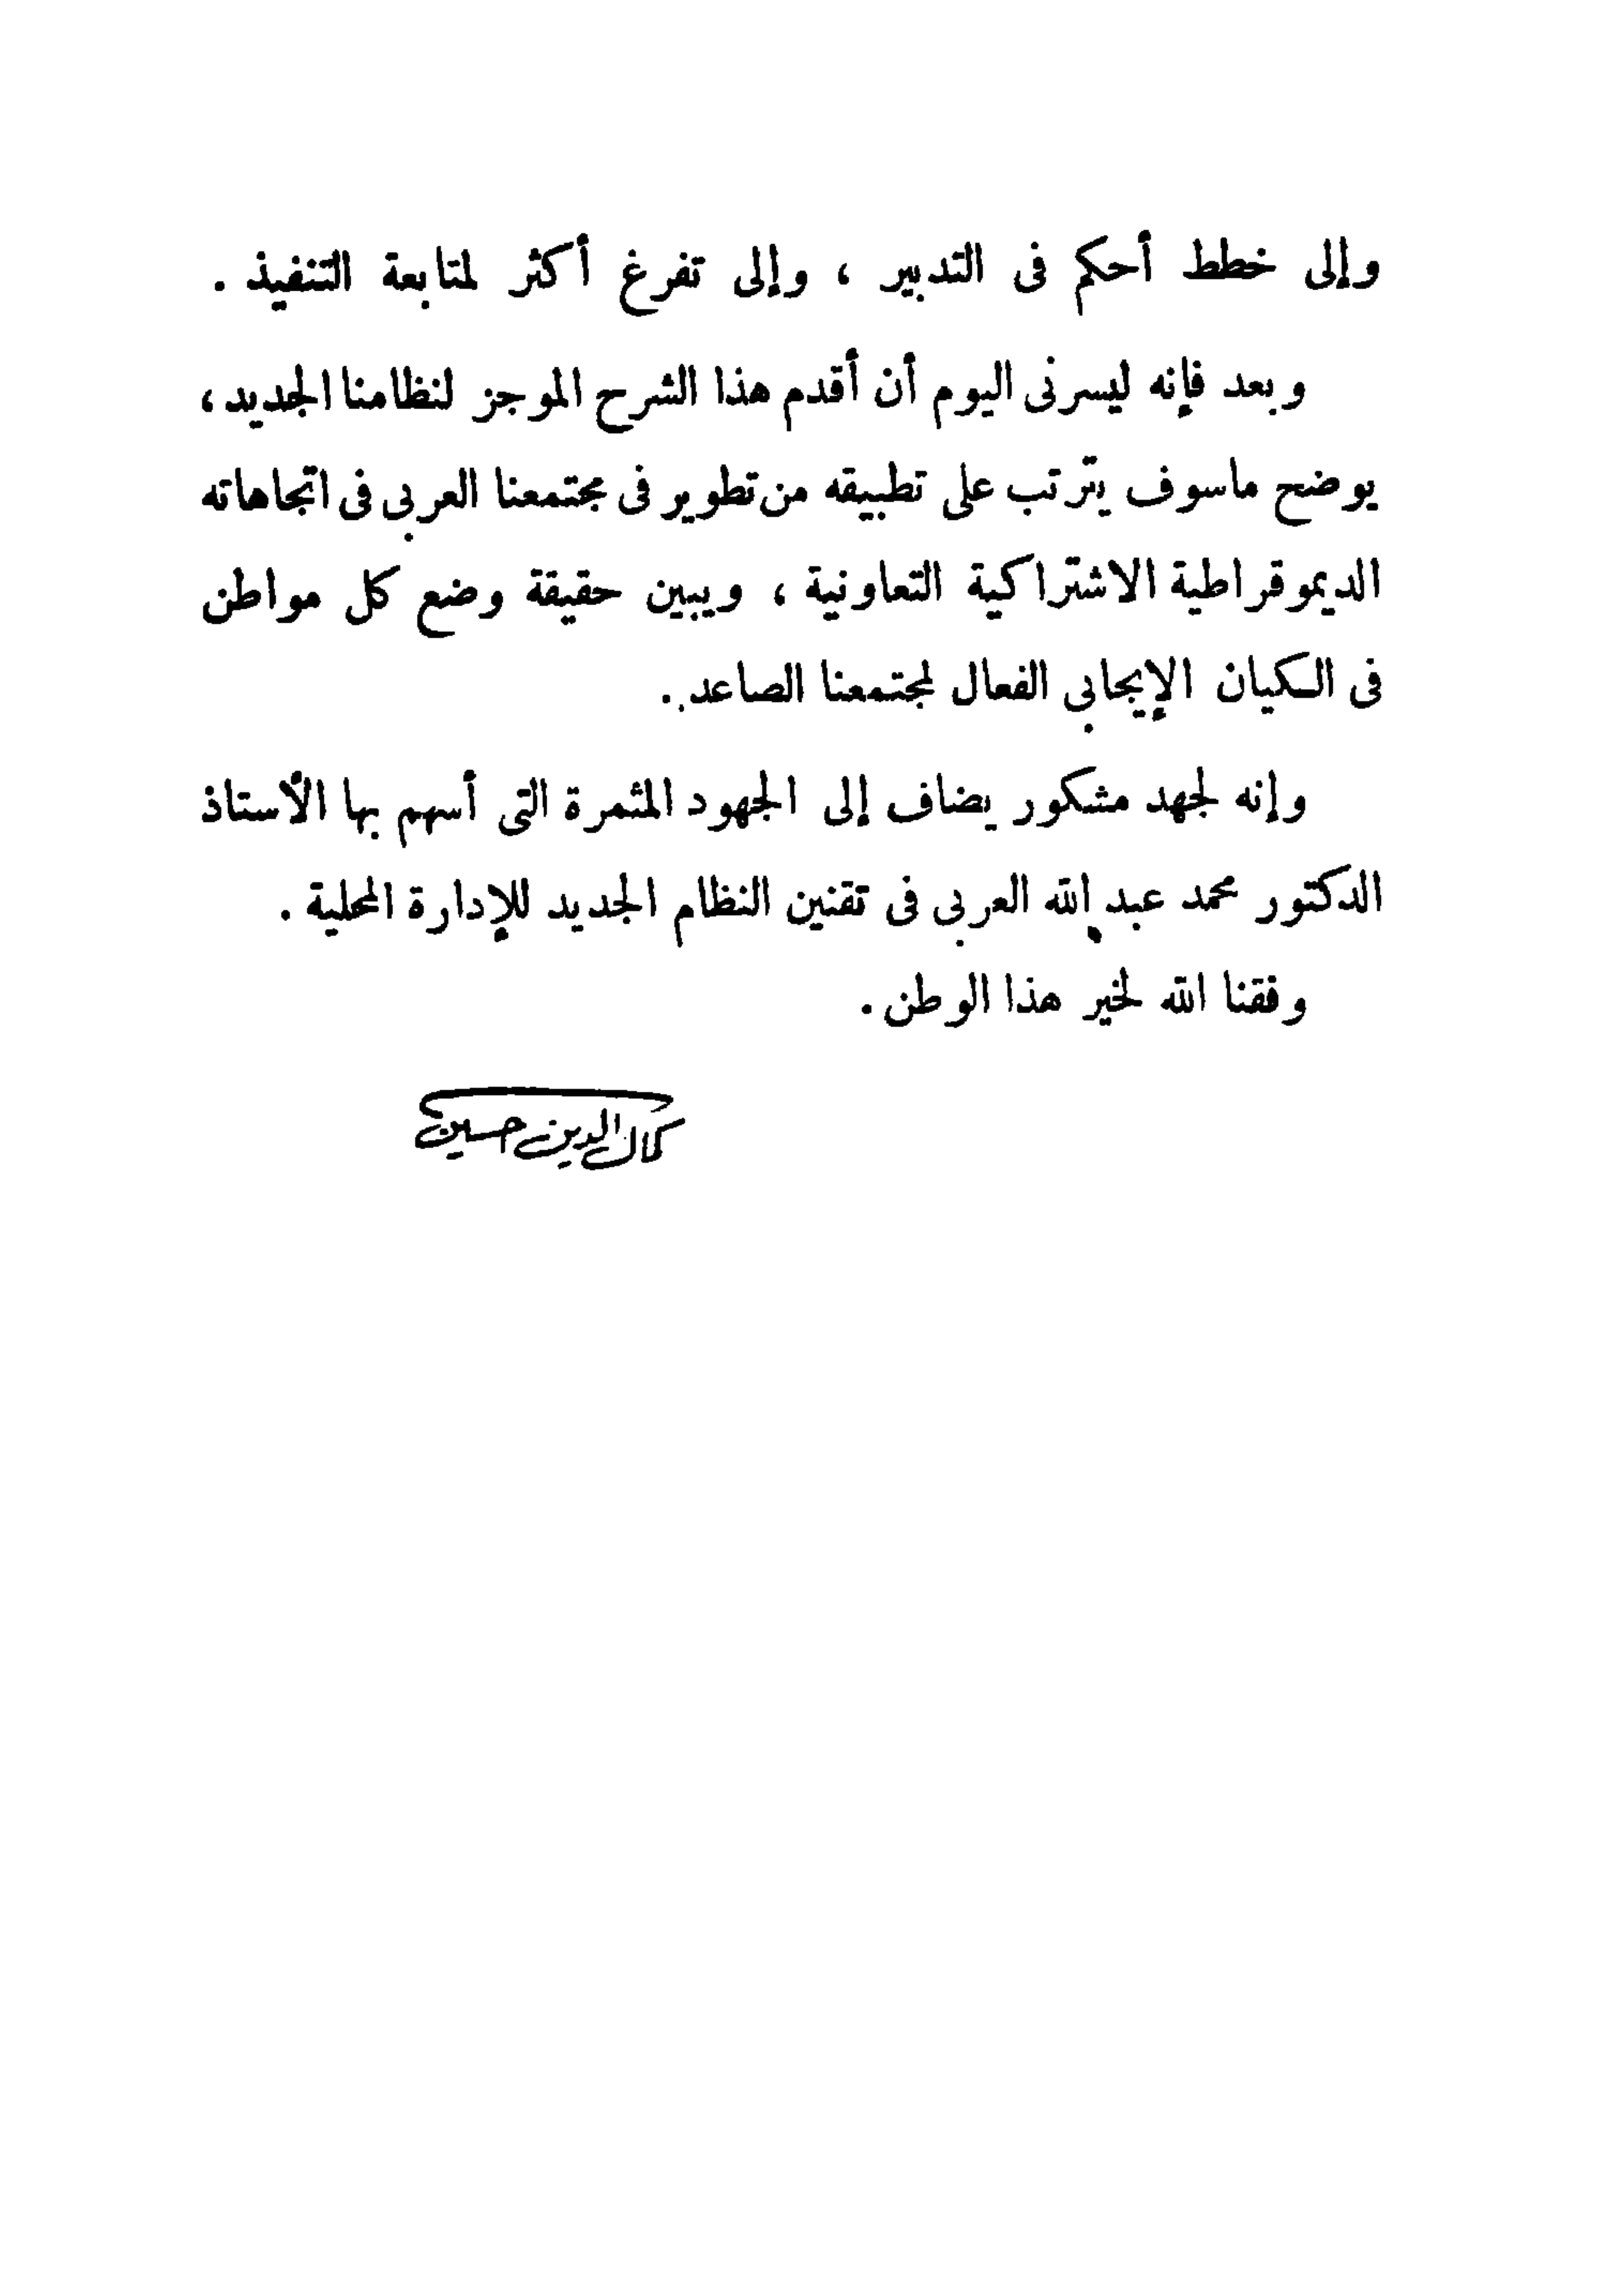 وإلى خطط أحكم فى التدبير ، وإلى تفرغ أكثر لمتابعة التنفيذ .
وبعد فإنه ليسرنى اليوم أن أقدم هذا الشرح الموجز لنظامنا الجديد ،
يوضح ماسوف يترتب على تطبيقه من تطوير فى مجتمعنا العربى فى اتجاهاته
الديموقراطية الاشتراكية التعاونية ، ويبين حقيقة وضع كل مواطن
فى الكيان الإيجابى الفعال لمجتمعنا الصاعد .
وإنه لجهد مشكور يضاف إلى الجهود المثمرة التى أسهم بها الأستاذ
الدكتور محمد عبد الله العربى فى تقنين النظام الجديد للإدارة المحلية .
وفقنا الله لخير هذا الوطن .
كمال الدين حسين